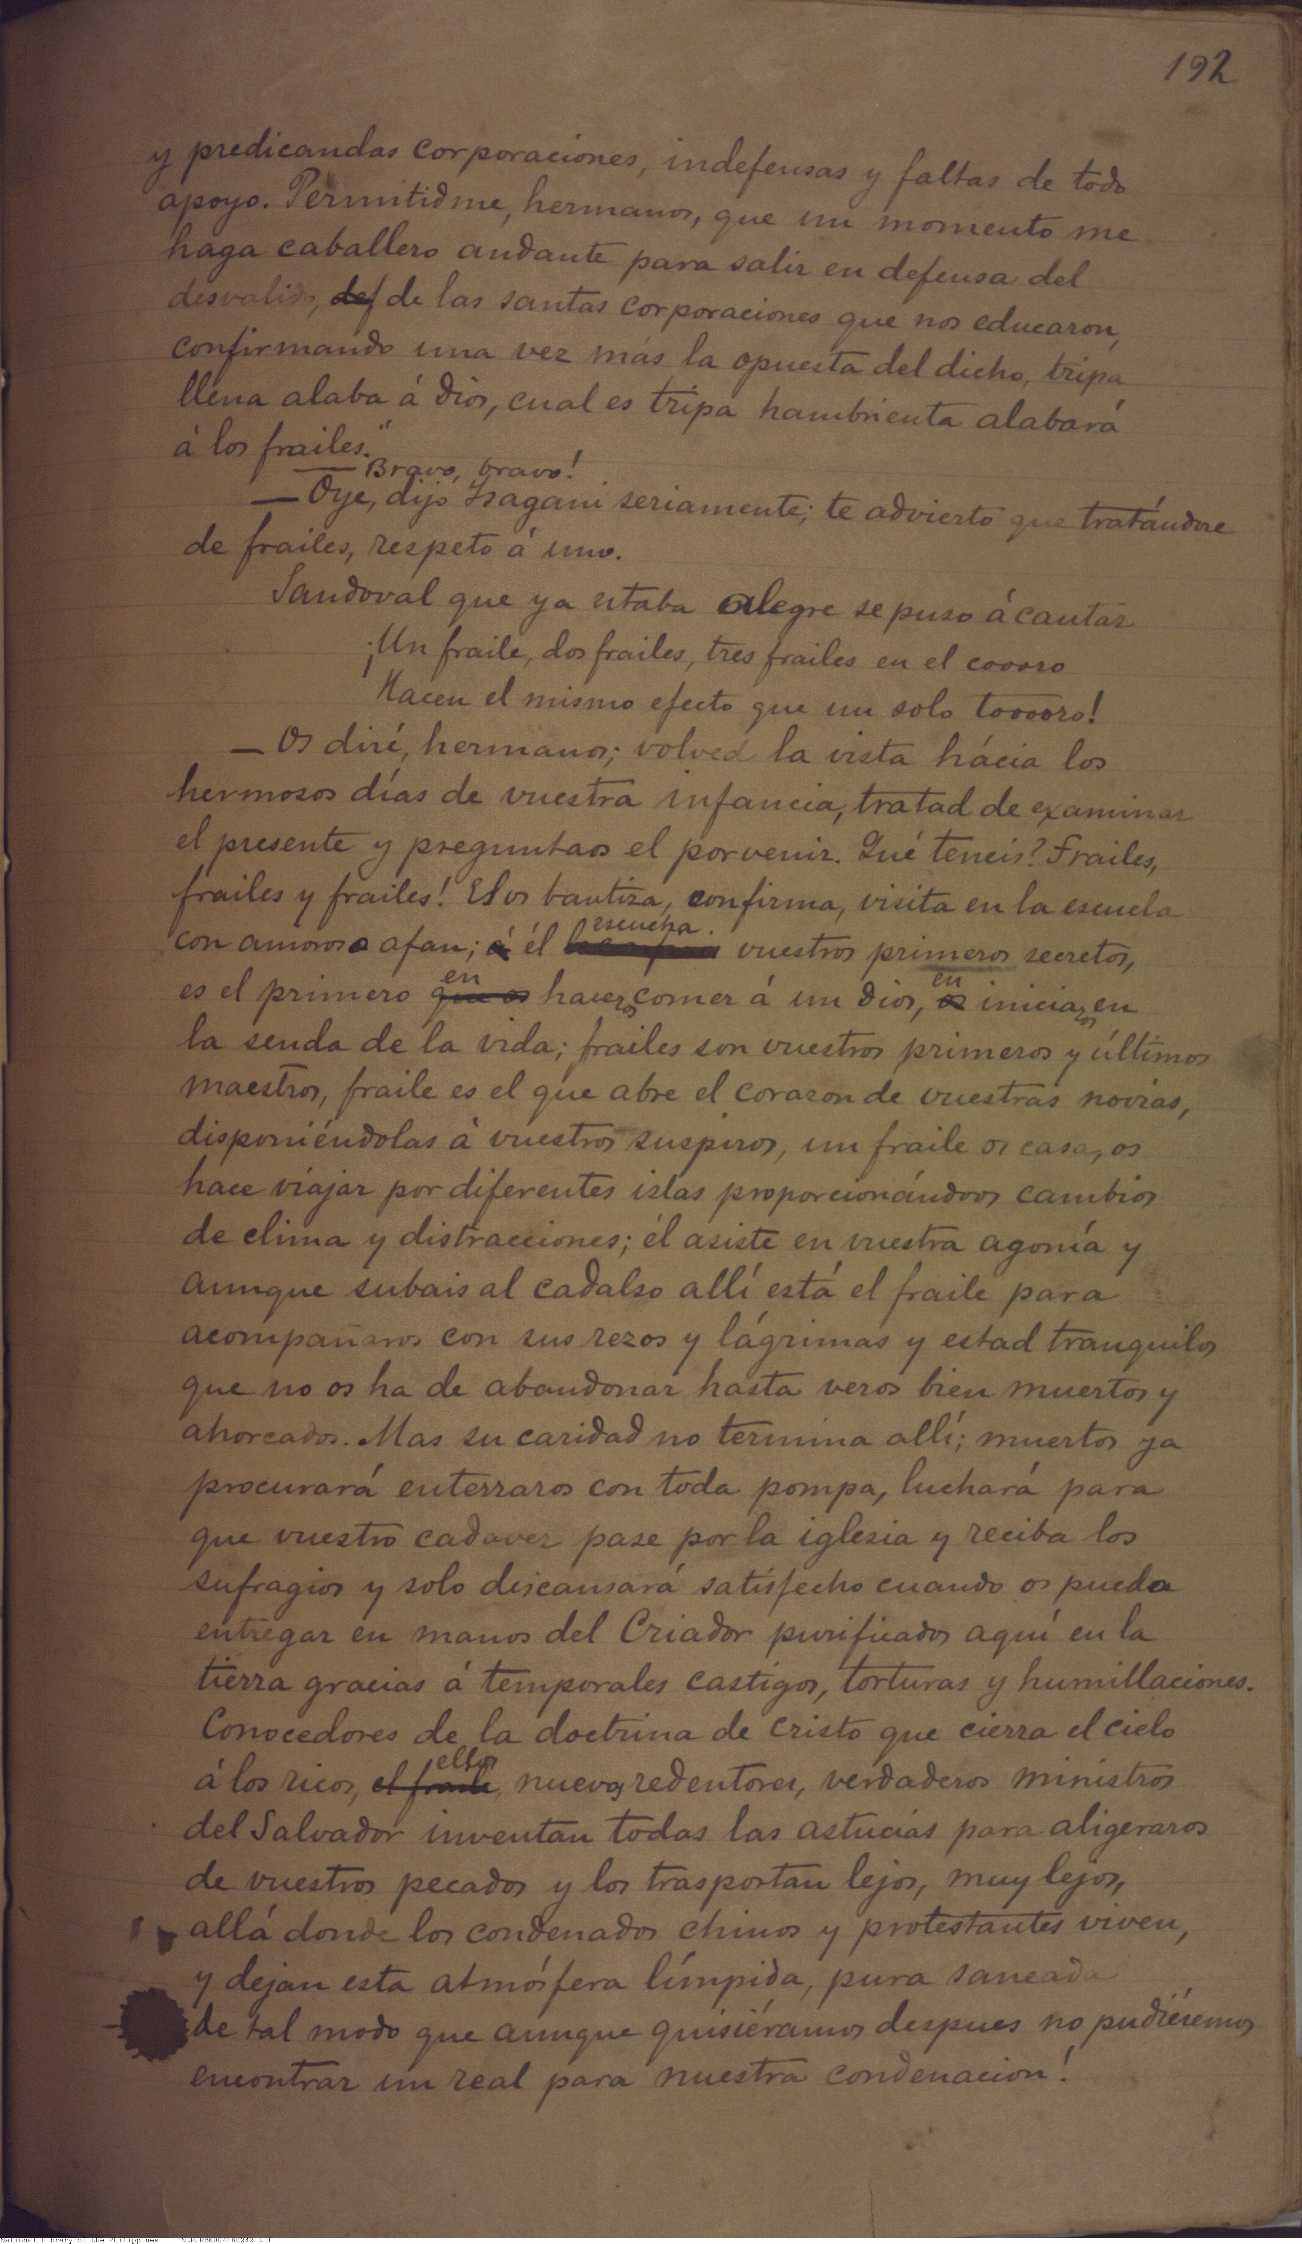 192
y predicandas corporaciones, indefensas y faltas de todo
apoyo. Permitidme, hermanos, que un momento me
haga caballero andante para salir en defensa del
desvalido, def de las santas corporaciones que nos educaron,
confirmando una vez más la opuesta del dicho, tripa
llena alaba á Dios, cual es tripa hambrienta alabará
á los frailes."
— Bravo, bravo!
— Oye, dijo Isagani seriamente; te advierto que tratándose
de frailes, respeto á uno.
Sandoval que ya estaba alegre se puso á cantar
¡Un fraile, dos frailes, tres frailes en el coooro
Hacen el mismo efecto que un solo toooro!
— Os diré, hermanos; volved la vista hácia los
hermosos días de vuestra infancia, tratad de examinar
el presente y preguntaos el porvenir. Qué teneis? Frailes,
frailes y frailes! El os bautiza, confirma, visita en la escuela
con amoroso afan; él escucha vuestros primeros secretos,
es el primero en haceros comer á un Dios, en iniciaros en
la senda de la vida; frailes son vuestros primeros y últimos
maestros, fraile es el que abre el corazon de vuestras novias,
disponiéndolas á vuestros suspiros, un fraile os casa, os
hace viajar por diferentes islas proporcionándoos cambios
de clima y distracciones; él asiste en vuestra agonía y
aunque subais al cadalso allí está el fraile para
acompañaros con sus rezos y lágrimas y estad tranquilos
que no os ha de abandonar hasta veros bien muertos y
ahorcados. Mas su caridad no termina allí; muertos ya
procurará enterraros con toda pompa, luchará para
que vuestro cadaver pase por la iglesia y reciba los
sufragios y solo descansará satisfecho cuando os pueda
entregar en manos del Criador purificados aquí en la
tierra gracias á temporales castigos, torturas y humillaciones.
Conocedores de la doctrina de Cristo que cierra el cielo
á los ricos, el fraile ellos, nuevos redentores, verdaderos ministros
del Salvador inventan todas las astucias para aligeraros
de vuestros pecados y los trasportan lejos, muy lejos,
allá donde los condenados chinos y protestantes viven,
y dejan esta atmósfera límpida, pura saneada
de tal modo que aunque quisiéramos despues no pudiéremos
encontrar un real para nuestra condenacion!
National Library of the Philippines